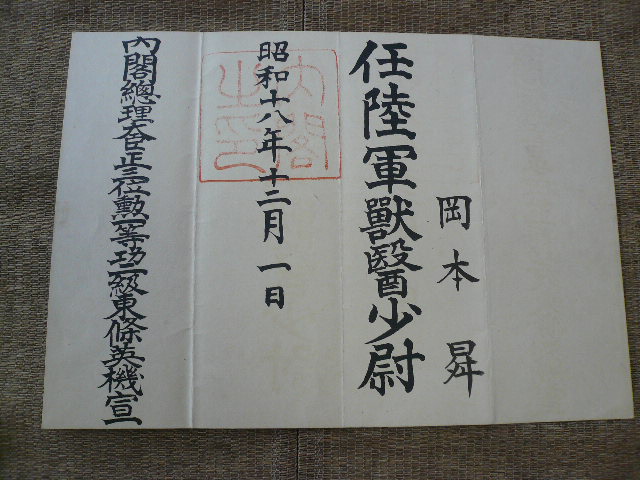 岡本昇
任陸軍獸醫少尉
昭和十八年十二月一日
內閣之印
內閣總理大臣正三位勲一等功二級東條英機宣